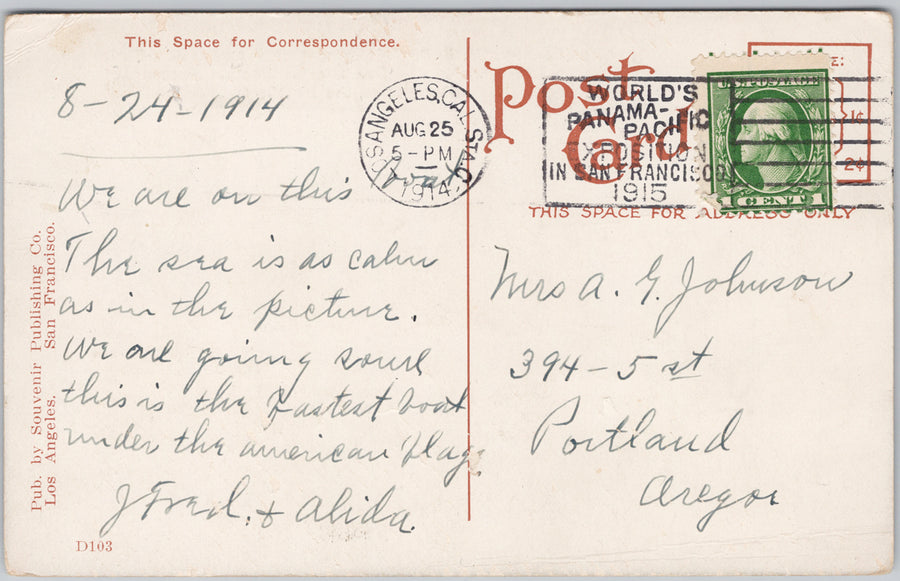 This Space for Correspondence.
8-24-1914
We are on this boat
The sea is as calm
as in the picture.
We are going some
this is the fastest boat
under the american flag.
J Fred. & Alida.
D103
Pub. by Souvenir Publishing Co.
Los Angeles. San Francisco.
LOS ANGELES, CAL. STA. C
AUG 25
5-PM
1914
WORLD'S
PANAMA-PACIFIC
EXPOSITION
IN SAN FRANCISCO
1915
Post Card
U.S. POSTAGE
1 CENT 1
1¢
2¢
THIS SPACE FOR ADDRESS ONLY
Mrs A. G. Johnson
394-5 st
Portland
Oregon